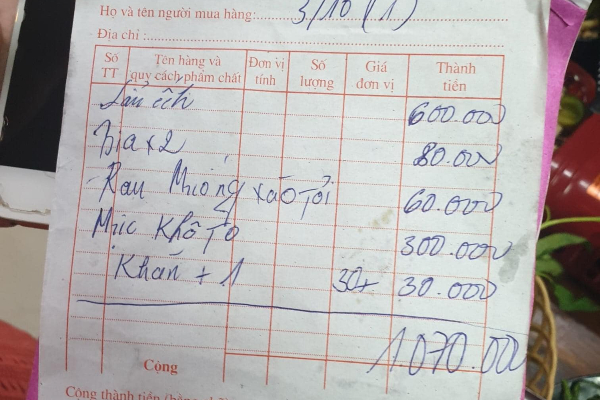 Họ và tên người mua hàng: 3/10 (1)
Địa chỉ :
Số TT Tên hàng và quy cách phẩm chất Đơn vị tính Số lượng Giá đơn vị Thành tiền
Lẩu ếch 600.000
Bia x2 80.000
Rau Muống xào tỏi 60.000
Mực khô to 300.000
Khăn + 1 30+ 30.000
1.070.000
Cộng
Cộng thành tiền